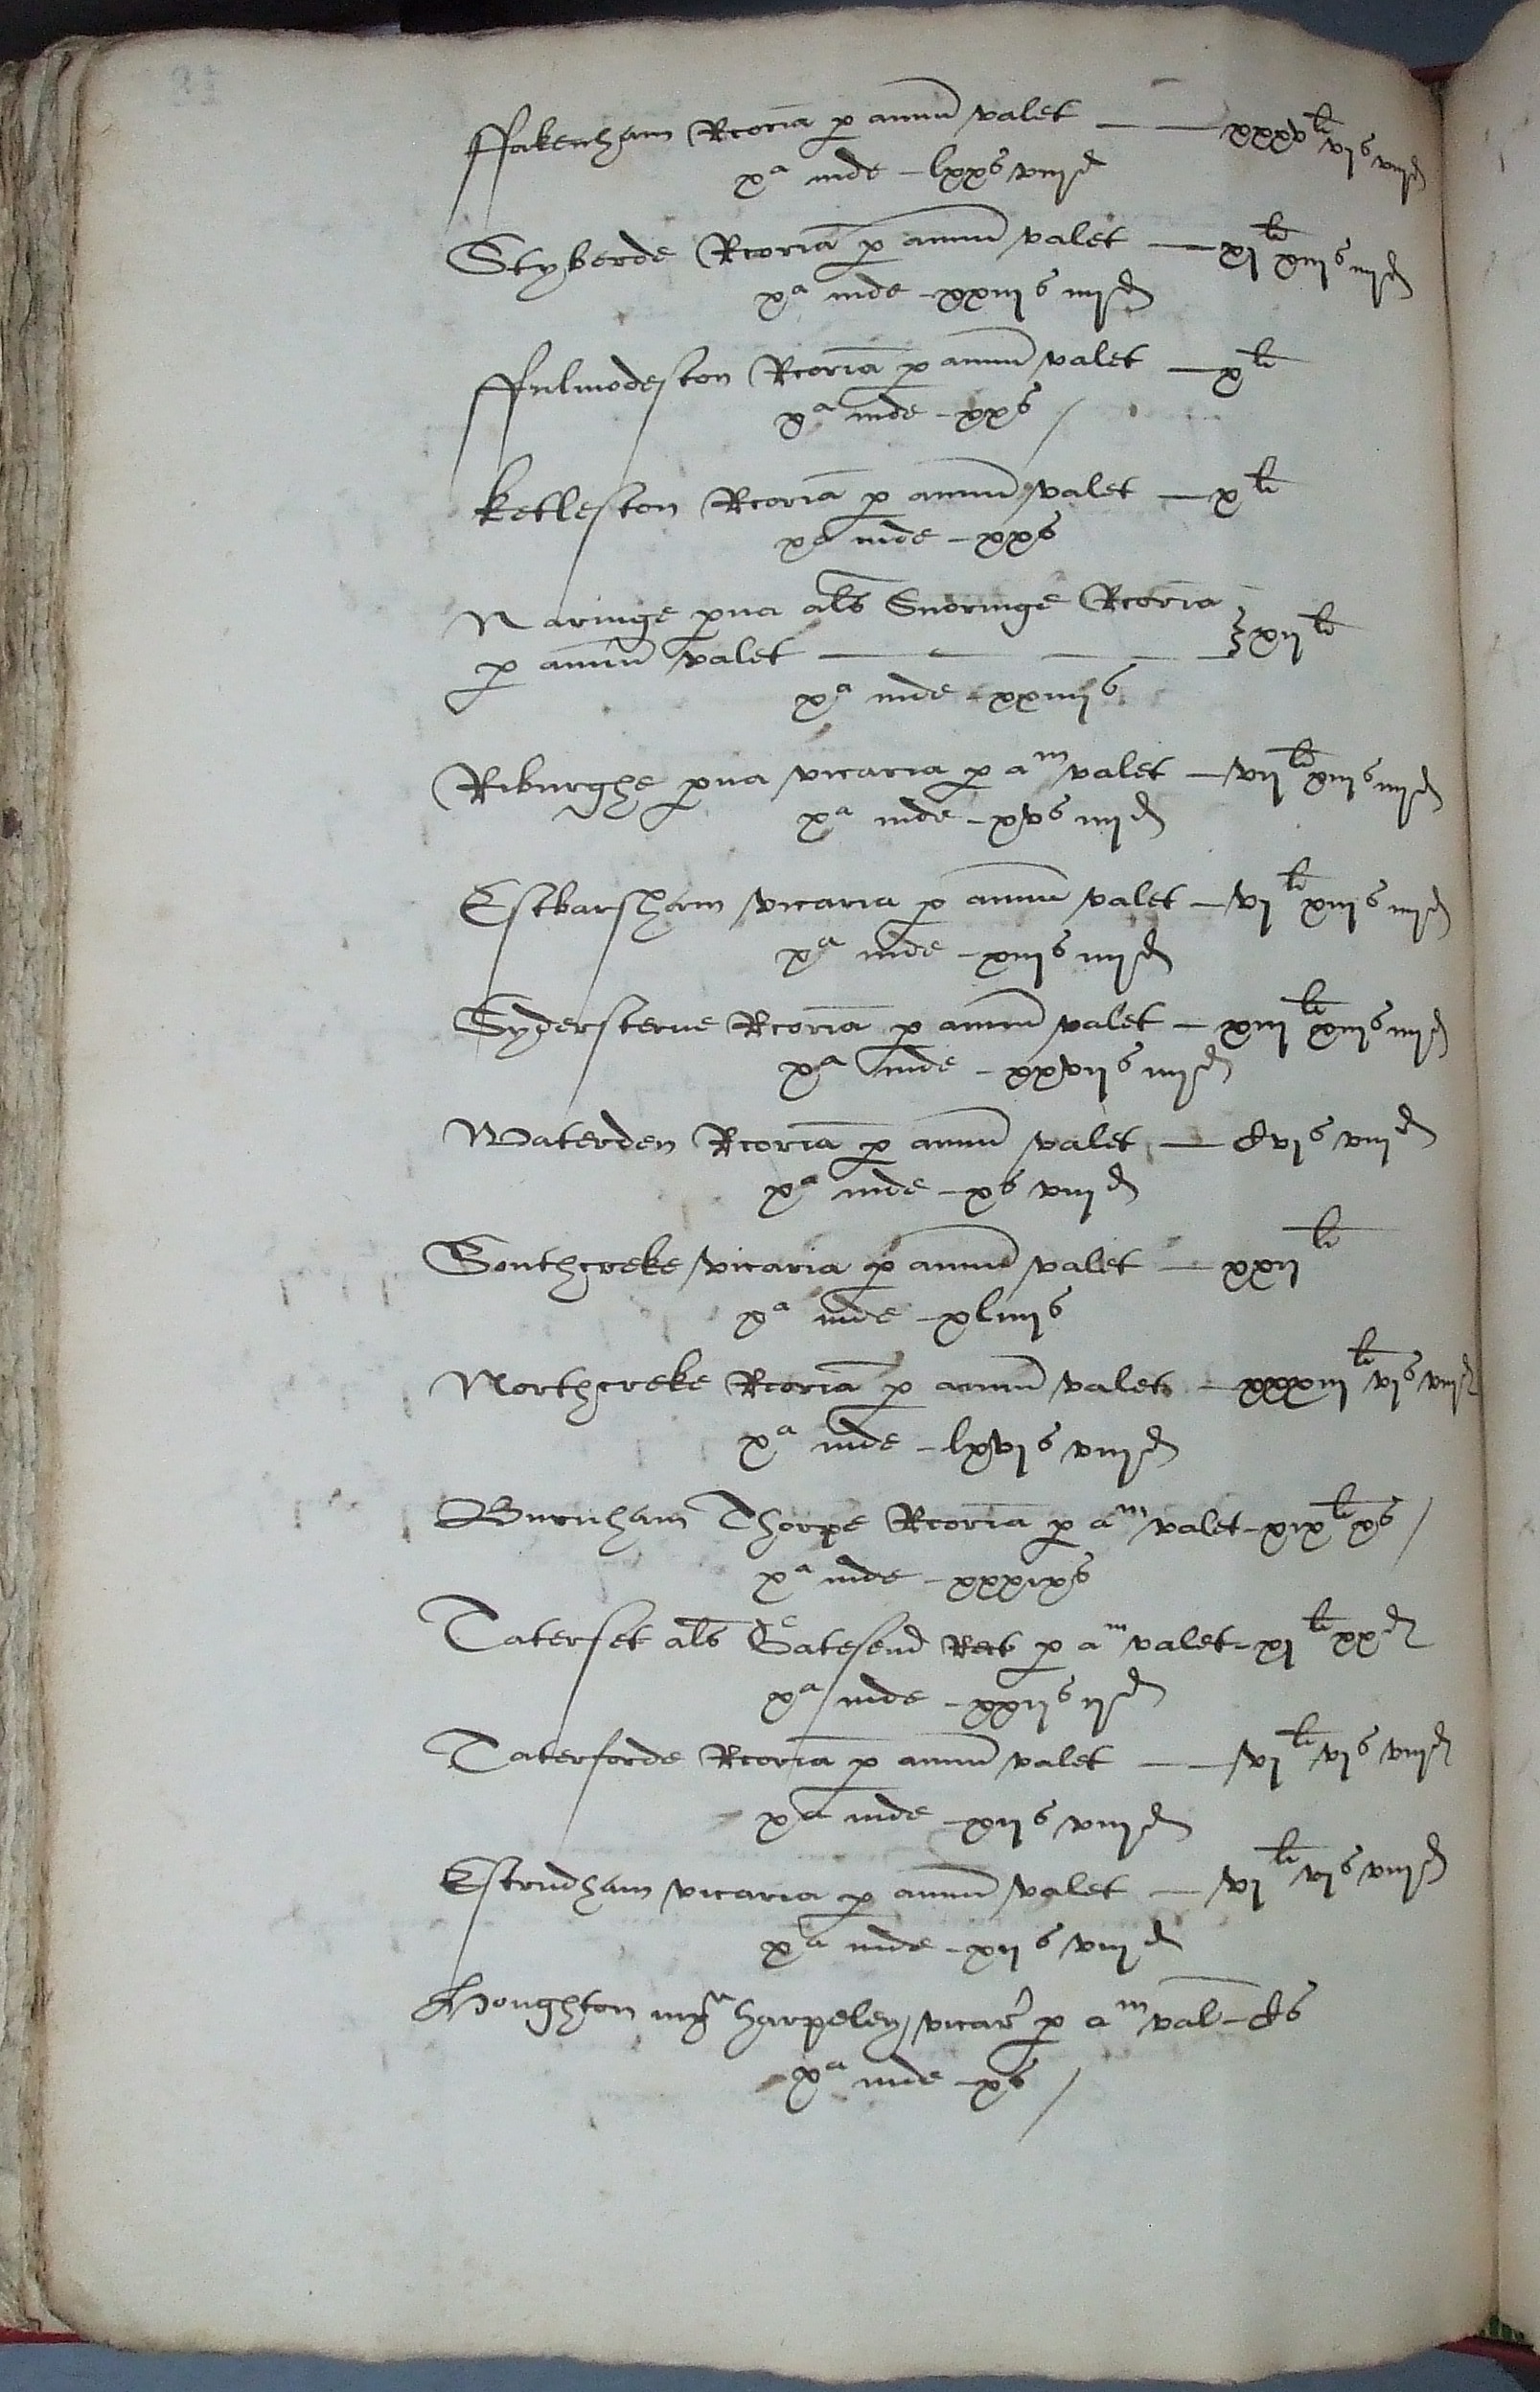 ffakenham Rcoria p annu valet — xxxv li vi s viij d
xa inde - lxx s viij d
Styberde Rcoria p annu valet — xj li xiij s iiij d
xa inde - xxiij s iiij d
ffulmodeston Rcoria p annu valet — x li
xa inde - xx s /
ketleston Rcoria p annu valet — x li
xa inde - xx s
Naringe pua als Snoringe Rcoria
p annu valet — xij li
xa inde - xxiiij s
Riburghe pua vicaria p am valet — vij li xiij s iiij d
xa inde - xv s iiij d
Estbarsham vicaria p annu valet — vj li xiij s iiij d
xa inde - xiij s iiij d
Sydersterne Rcoria p annu valet — xiij li xiij s iiij d
xa inde - xxvij s iiij d
Waterden Rcoria p annu valet — Cvj s viij d
xa inde - x s viij d
Southcreke vicaria p annu valet — xxij li
xa inde - xliiij s
Northcreke Rcoria p annu valet — xxxiij li vj s viij d
xa inde - lxvj s viij d
Burnham Thorpe Rcoria p am valet - xix li x s /
xa inde - xxxix s
Taterset als Gatesend Rect p am valet - xj li xx d
xa inde - xxij s ij d
Taterforde Rcoria p annu valet — vj li vj s viij d
xa inde - xij s viij d
Estrudham vicaria p annu valet — vj li vj s viij d
xa inde - xij s viij d
Houghton iuxa harpeley vicar p am val - C s
xa inde - x s /